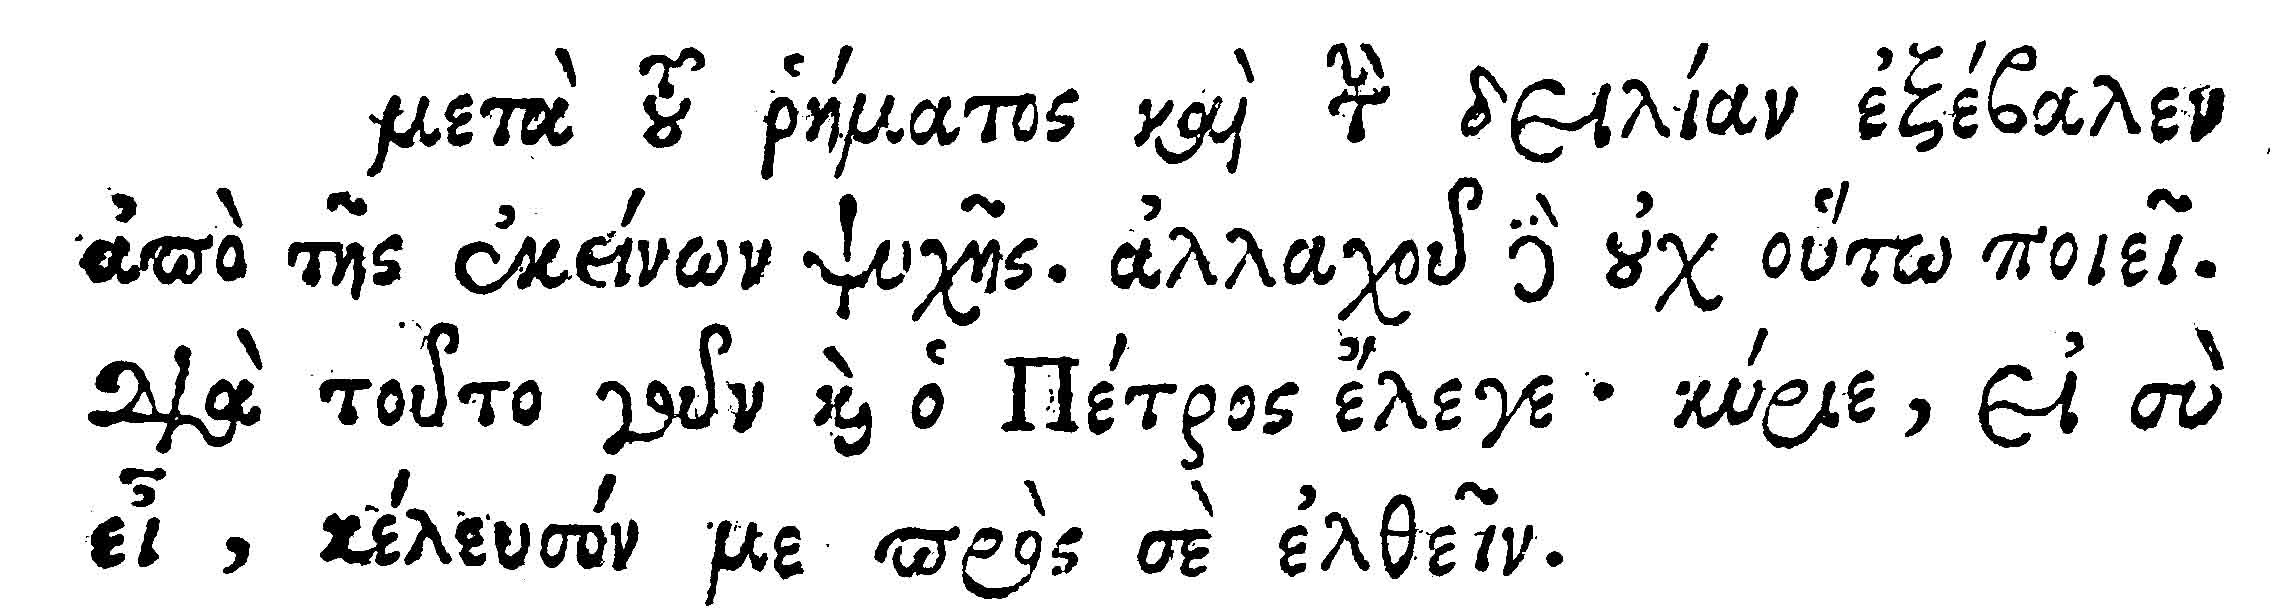 μετὰ τοῦ ῥήματος καὶ τὴν δειλίαν ἐξέβαλεν
ἀπὸ τῆς ἐκείνων ψυχῆς. ἀλλαχοῦ δὲ οὐχ οὕτω ποιεῖ.
Διὰ τοῦτο γοῦν καὶ ὁ Πέτρος ἔλεγε· κύριε, εἰ σὺ
εἶ, κέλευσόν με πρὸς σὲ ἐλθεῖν.